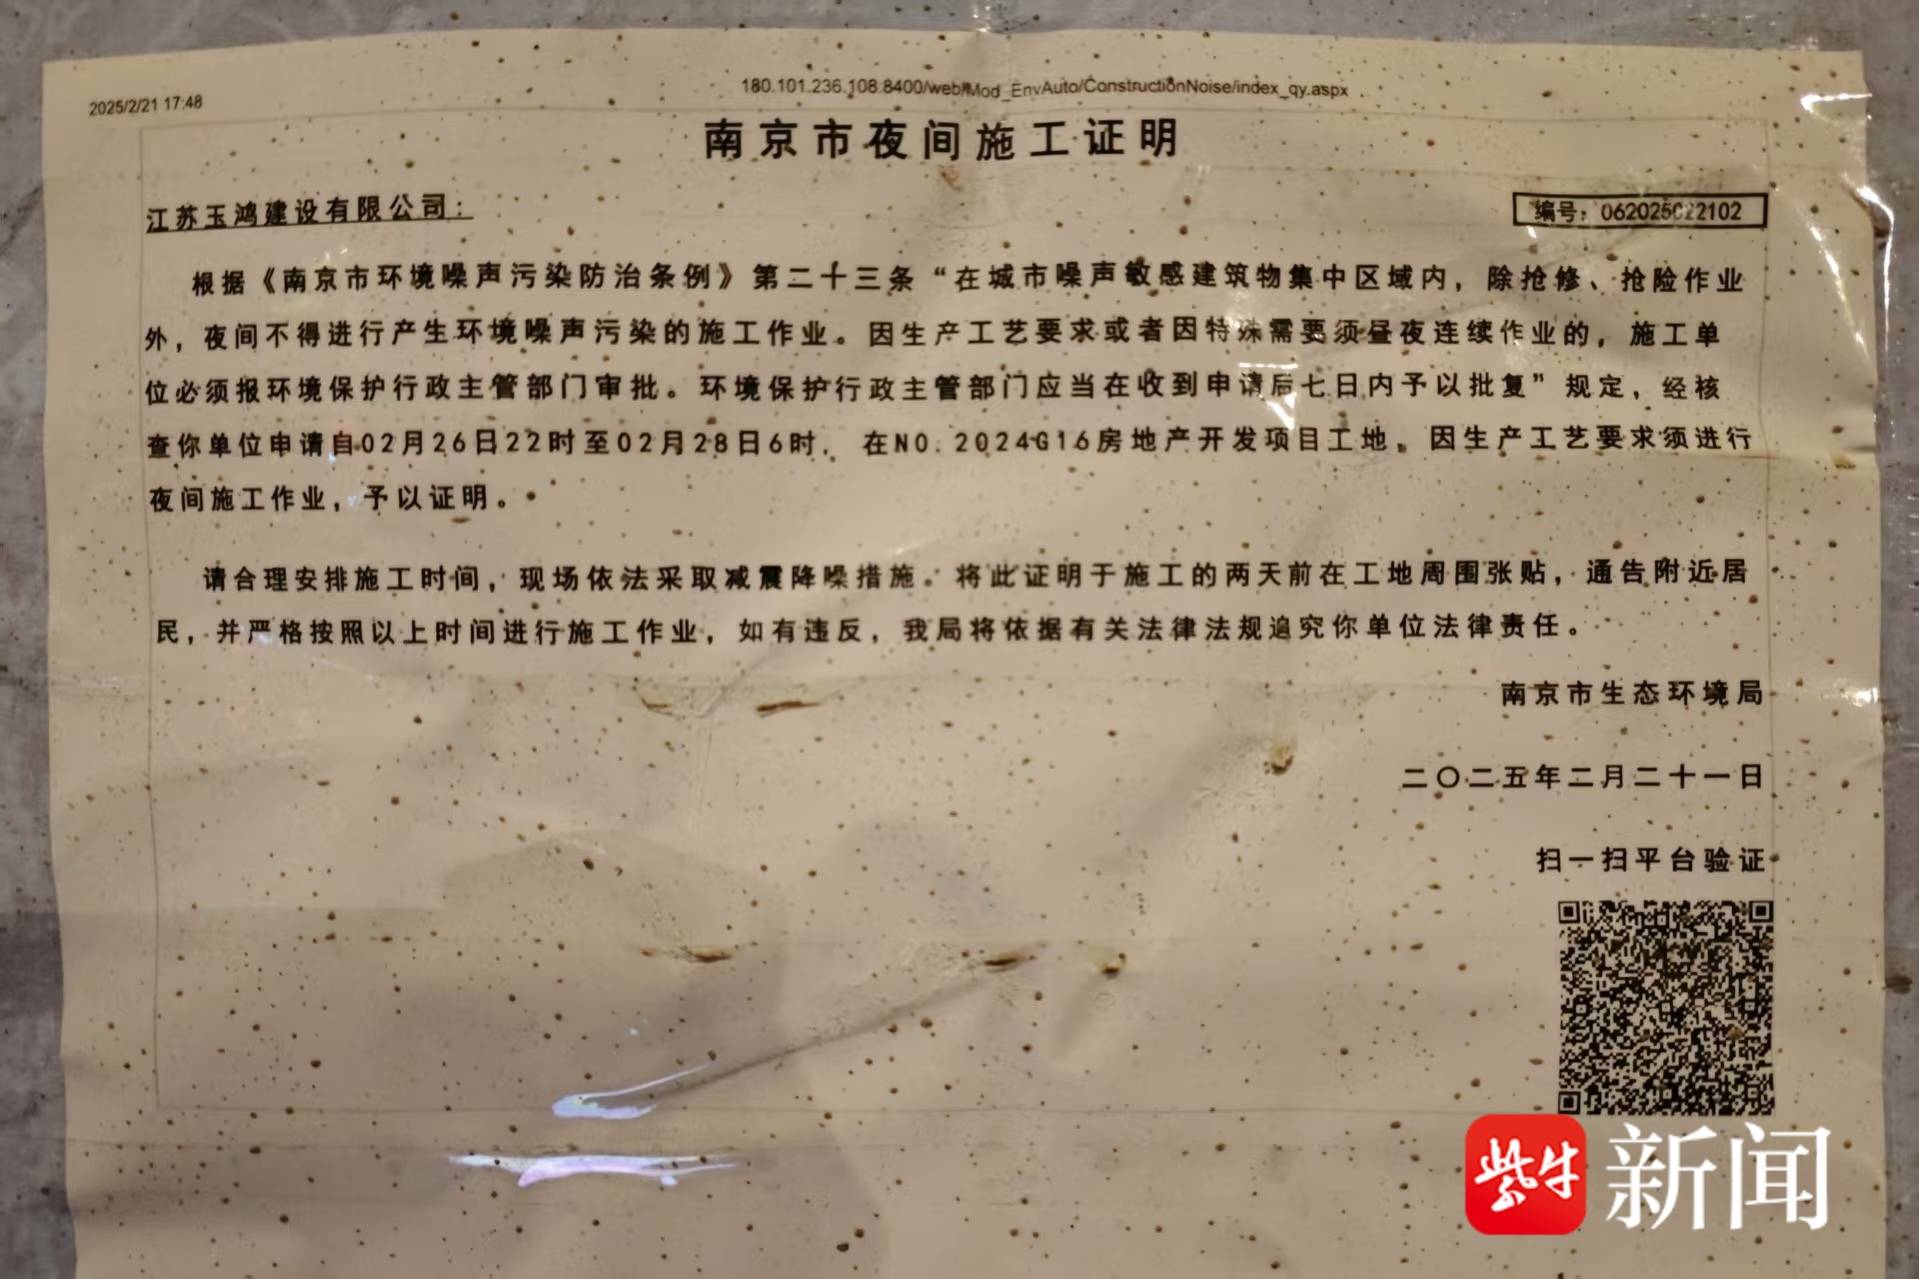 2025/2/21 17:48
180.101.236.108:8400/web/Mod_EnvAuto/ConstructionNoise/index_qy.aspx
南京市夜间施工证明
江苏玉鸿建设有限公司：
编号：062025022102
根据《南京市环境噪声污染防治条例》第二十三条“在城市噪声敏感建筑物集中区域内，除抢修、抢险作业
外，夜间不得进行产生环境噪声污染的施工作业。因生产工艺要求或者因特殊需要须昼夜连续作业的，施工单
位必须报环境保护行政主管部门审批。环境保护行政主管部门应当在收到申请后七日内予以批复”规定，经核
查你单位申请自02月26日22时至02月28日6时，在NO.2024G16房地产开发项目工地，因生产工艺要求须进行
夜间施工作业，予以证明。
请合理安排施工时间，现场依法采取减震降噪措施。将此证明于施工的两天前在工地周围张贴，通告附近居
民，并严格按照以上时间进行施工作业，如有违反，我局将依据有关法律法规追究你单位法律责任。
南京市生态环境局
二〇二五年二月二十一日
扫一扫平台验证
紫牛新闻